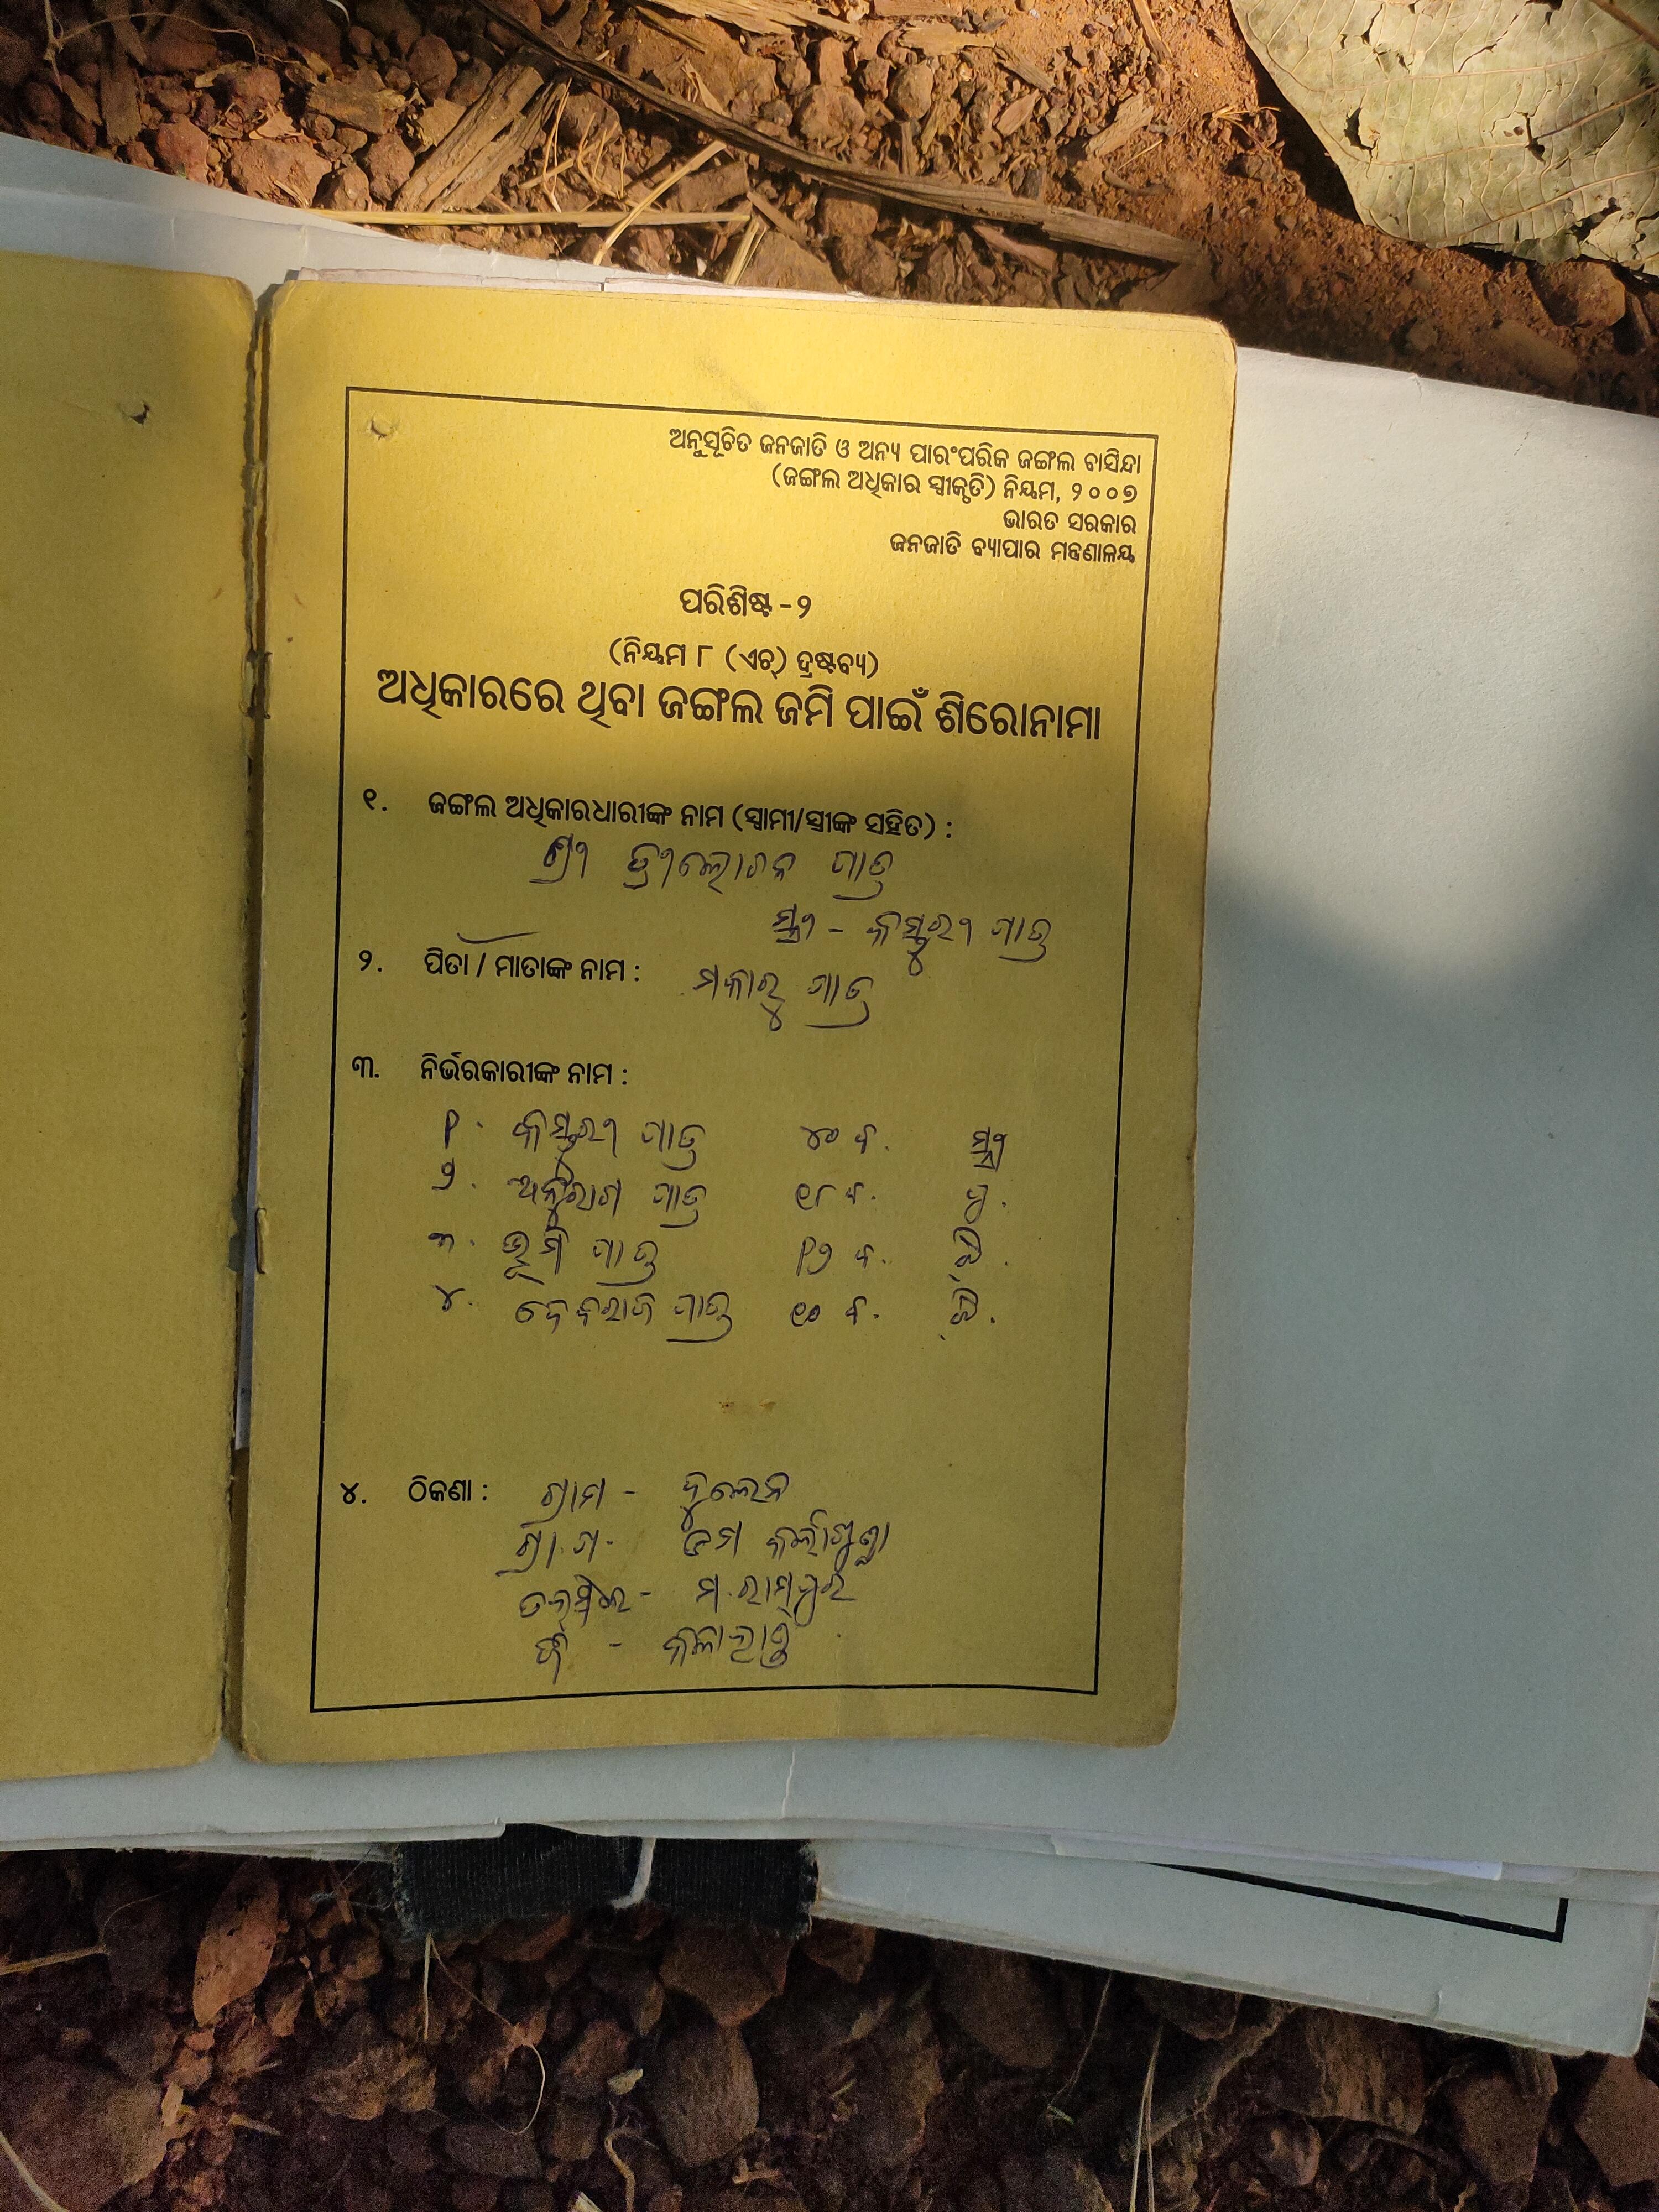 ଅନୁସୂଚିତ ଜନଜାତି ଓ ଅନ୍ୟ ପାରଂପରିକ ଜଙ୍ଗଲ ବାସିନ୍ଦା
(ଜଙ୍ଗଲ ଅଧିକାର ସ୍ୱୀକୃତି) ନିୟମ, ୨୦୦୭
ଭାରତ ସରକାର
ଜନଜାତି ବ୍ୟାପାର ମନ୍ତ୍ରଣାଳୟ
ପରିଶିଷ୍ଟ - ୨
(ନିୟମ ୮ (ଏଚ୍) ଦ୍ରଷ୍ଟବ୍ୟ)
ଅଧିକାରରେ ଥିବା ଜଙ୍ଗଲ ଜମି ପାଇଁ ଶିରୋନାମା
୧. ଜଙ୍ଗଲ ଅଧିକାରଧାରୀଙ୍କ ନାମ (ସ୍ୱାମୀ/ସ୍ତ୍ରୀଙ୍କ ସହିତ) :
ଶ୍ରୀ ତ୍ରୀଲୋଚନ ପାତ୍ର
ସ୍ତ୍ରୀ - କସ୍ତୁରୀ ପାତ୍ର
୨. ପିତା / ମାତାଙ୍କ ନାମ : ମକାରୁ ପାତ୍ର
୩. ନିର୍ଭରକାରୀଙ୍କ ନାମ :
୧. କସ୍ତୁରୀ ପାତ୍ର ୪୦ ବ. ସ୍ତ୍ରୀ
୨. ଅନୁରାଗ ପାତ୍ର ୧୮ ବ. ପୁ.
୩. ଭୂମି ପାତ୍ର ୧୨ ବ. ଝି.
୪. ଦେବରାଜ ପାତ୍ର ୧୦ ବ. ଝି.
୪. ଠିକଣା : ଗ୍ରାମ - ଦୁଲେନ
ଗ୍ରା.ପ.
ତହସିଲ - ମ.ରାମପୁର
ଜି - କଳାହାଣ୍ଡି